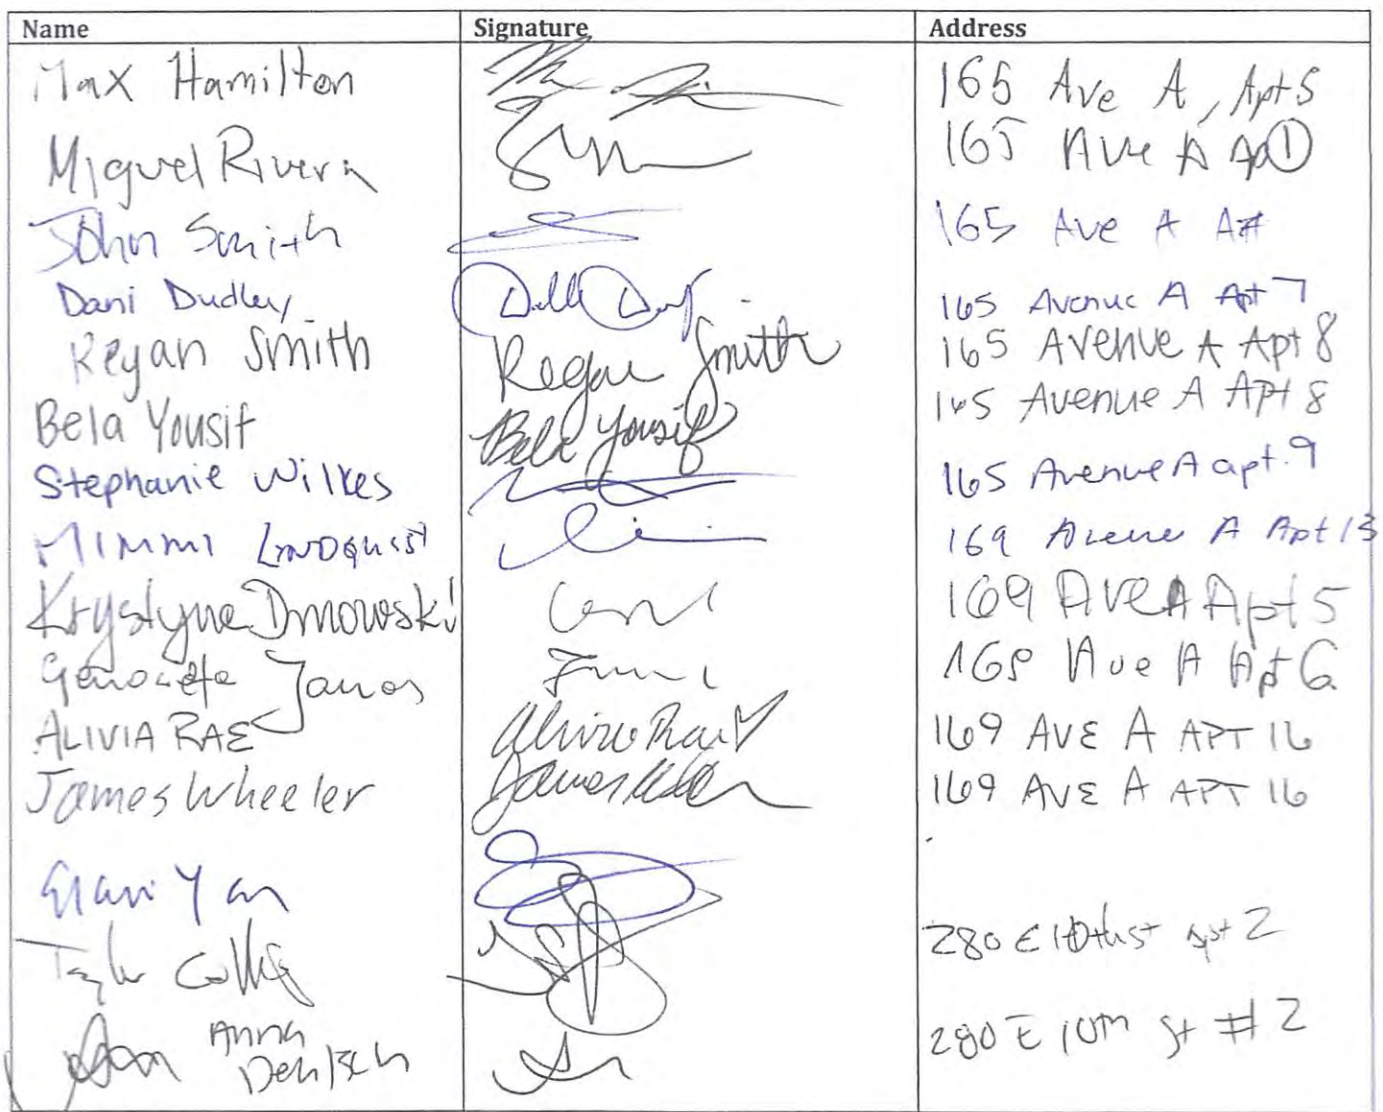 Name Signature Address
Max Hamilton 165 Ave A, Apt 5
Miguel Rivera 165 Ave A Ap 1
John Smith 165 Ave A A#
Dani Dudley 165 Avenue A Apt 7
Regan Smith Regan Smith 165 Avenue A Apt 8
Bela Yousif Bela Yousif 165 Avenue A Apt 8
Stephanie Wilkes 165 Avenue A apt. 9
Mimmi Lindquist 169 Avenue A Apt 13
Krystyna Dmowski 169 Ave A Apt 5
Janos Ave A Apt 6
ALIVIA RAE Alivia Rae 169 AVE A APT 16
James Wheeler James 169 AVE A APT 16
Yan
Taylor 280 E 10th st apt 2
Anna 280 E 10th St # 2